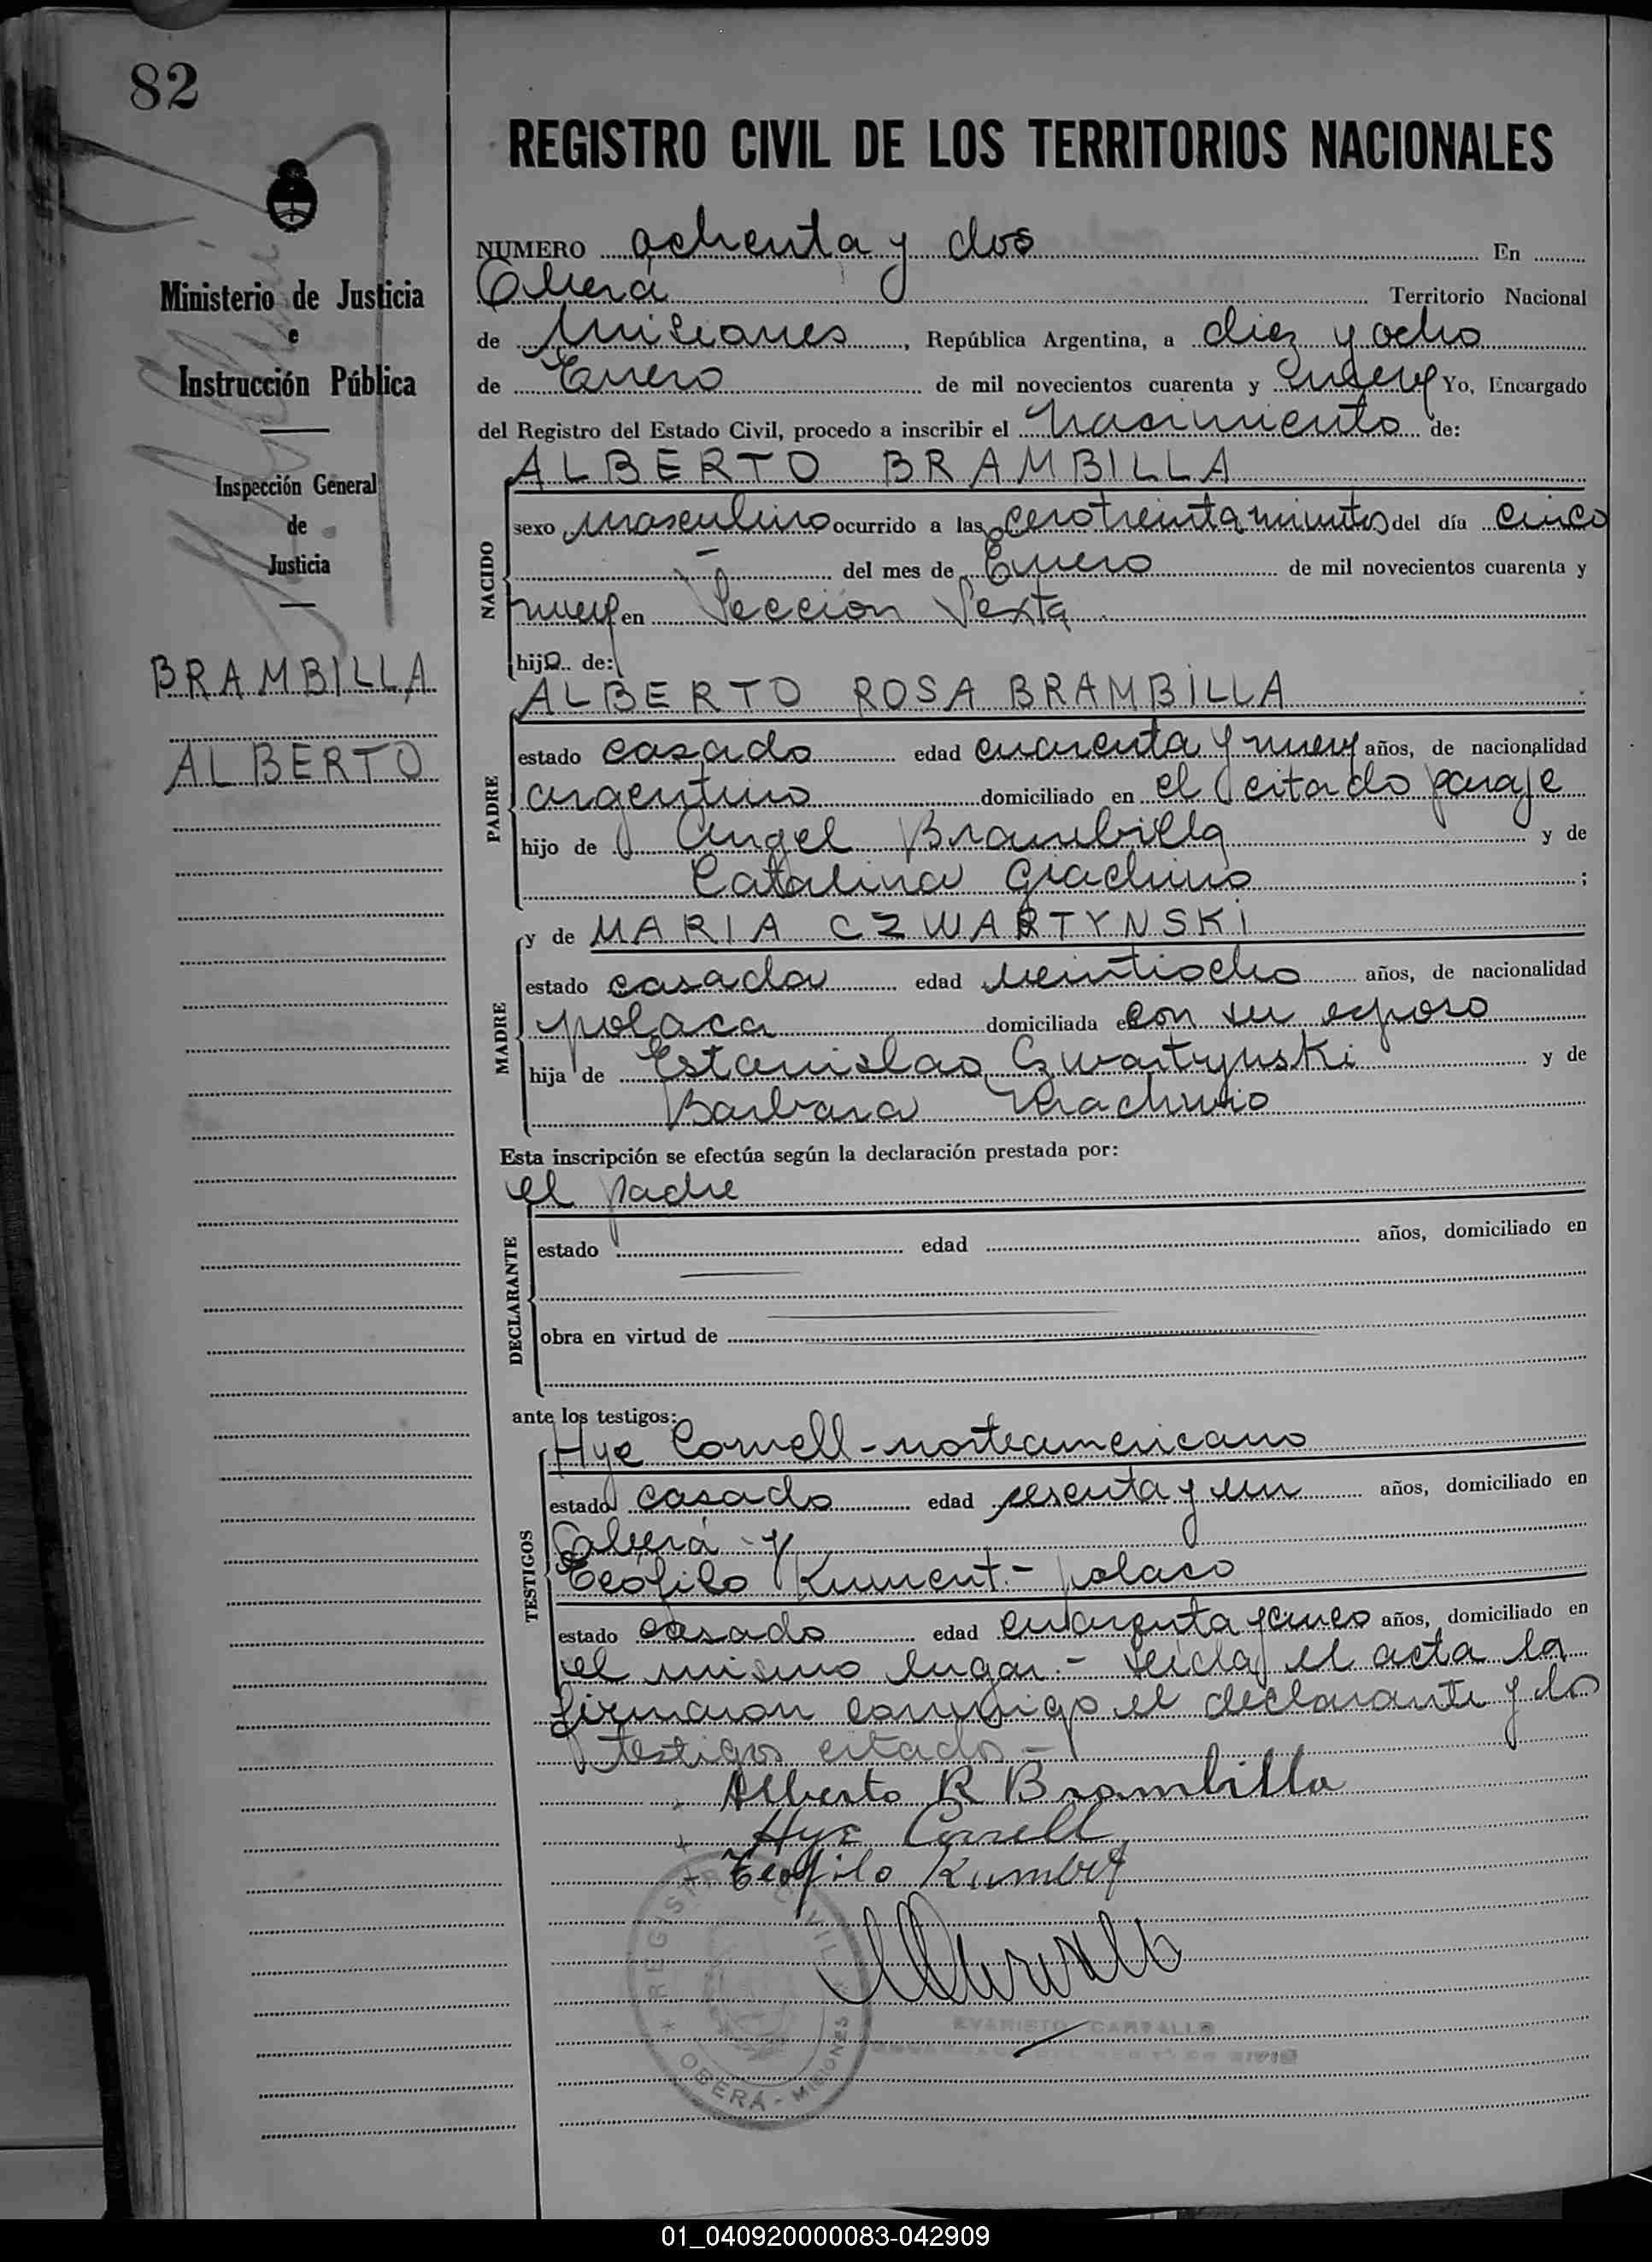 82
REGISTRO CIVIL DE LOS TERRITORIOS NACIONALES
Ministerio de Justicia
e
Instrucción Pública
Inspección General
de
Justicia
BRAMBILLA
ALBERTO
NUMERO ochenta y dos En
Oberá Territorio Nacional
de Misiones, República Argentina, a diez y ocho
de Enero de mil novecientos cuarenta y nueve Yo, Encargado
del Registro del Estado Civil, procedo a inscribir el nacimiento de:
ALBERTO BRAMBILLA
NACIDO
sexo masculino ocurrido a las cero treinta minutos del día cinco
- del mes de Enero de mil novecientos cuarenta y
nueve en Sección Sexta
hijo de:
ALBERTO ROSA BRAMBILLA
PADRE
estado casado edad cuarenta y nueve años, de nacionalidad
argentino domiciliado en el citado paraje
hijo de Angel Brambilla y de
Catalina Giachino ;
y de MARIA CZWARTYNSKI
MADRE
estado casada edad veintiocho años, de nacionalidad
polaca domiciliada con su esposo
hija de Estanislao Czwartynski y de
Barbara
Esta inscripción se efectúa según la declaración prestada por:
el padre
DECLARANTE
estado edad años, domiciliado en
obra en virtud de
ante los testigos:
Hye Cornell - norteamericano
TESTIGOS
estado casado edad sesenta y un años, domiciliado en
Oberá y
Teófilo Kument.- polaco
estado casado edad cuarenta y cinco años, domiciliado en
el mismo lugar.- Leída el acta la
firmaron conmigo el declarante y los
testigos citados -
Alberto R Brambilla
Hye Cornell
Teofilo
REGISTRO CIVIL
OBERÁ - MISIONES
EVARISTO CARVALLO
01_040920000083-042909